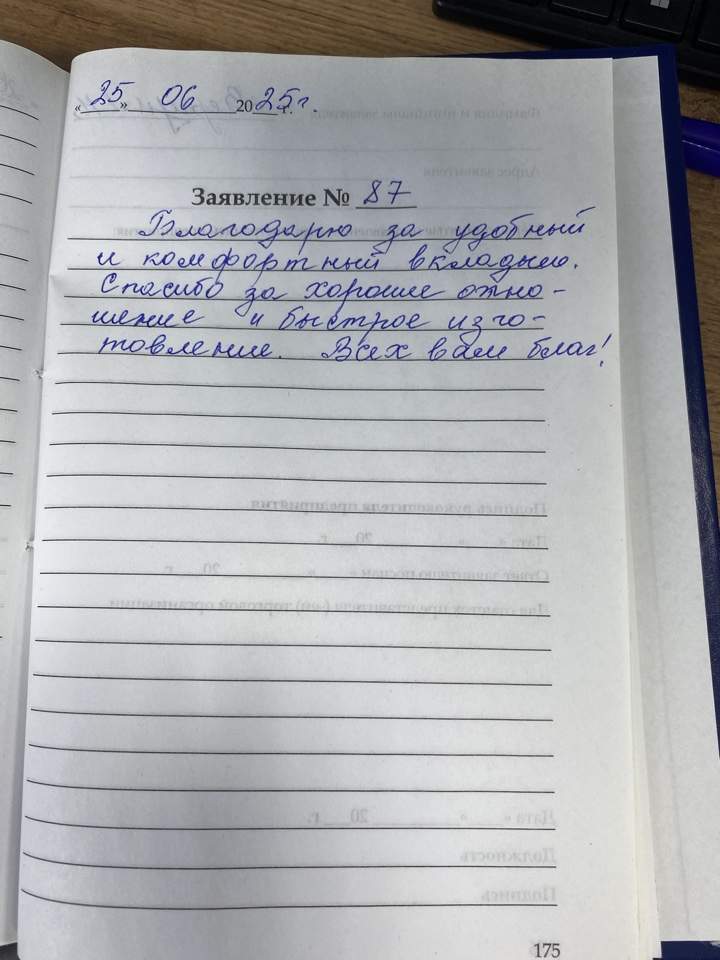 «25» 06 2025 г. г.
Заявление № 87
Благодарю за удобный
и комфортный вкладыш.
Спасибо за хорошие отно-
шение и быстрое изго-
товление. Всех вам благ!
175